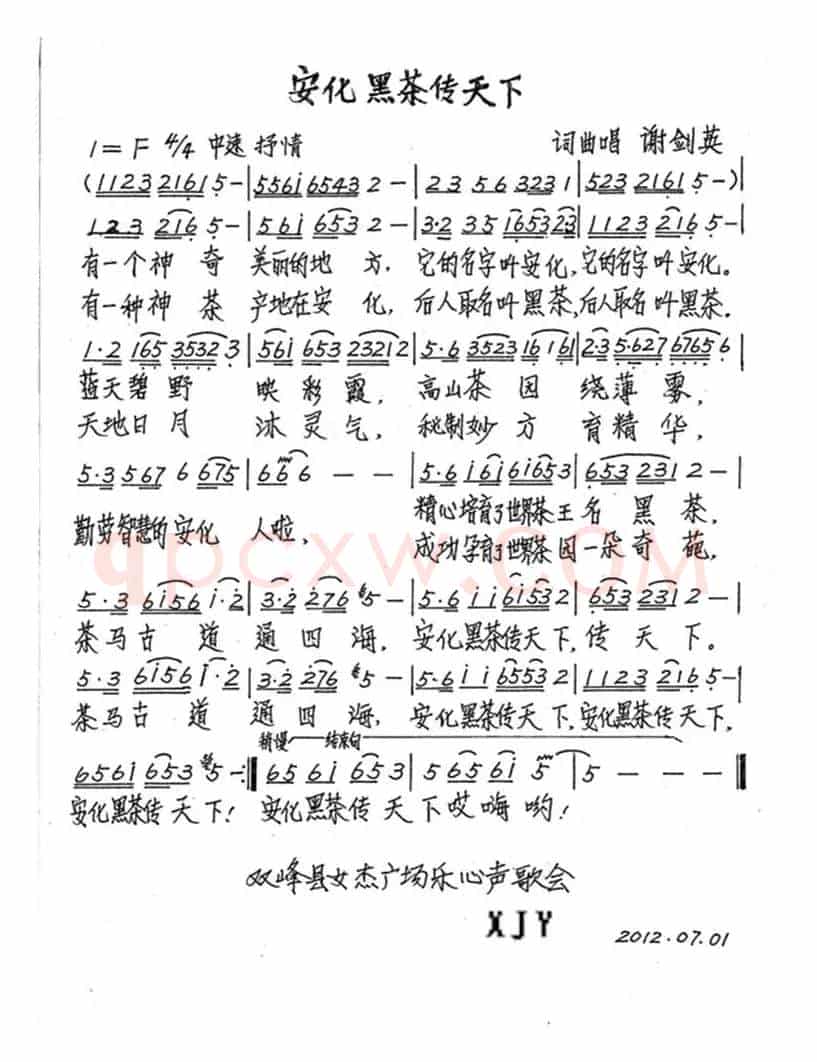 安化黑茶传天下
1=F 4/4 中速 抒情 词曲唱 谢剑英
(1123 2161 5-|556i 6543 2-|23 56 323 1|523 2161 5-)|
123 216 5-|561 653 2-|3·2 35 165323|1123 216 5-|
有一个神奇 美丽的地方, 它的名字叫安化,它的名字叫安化。
有一种神茶 产地在安化, 后人取名叫黑茶,后人取名叫黑茶.
1·2 165 3532 3|56i 653 23212|5·6 3523 16 161|2·3 5·627 67656|
蓝天碧野 映彩霞, 高山茶园 绕薄雾,
天地日月 沐灵气, 秘制妙方 育精华,
5·3 567 6 675|6 6 6 - -|5·6 i6i 6i653|653 231 2-|
勤劳智慧的安化 人啦, 精心培育了世界茶王名黑茶,
成功孕育了世界茶园一朵奇葩,
qpcxw.COM
5·3 6i56 i·2|3·2 276 5-|5·6 ii 6i532|653 231 2-|
茶马古道 通四海, 安化黑茶传天下,传天下。
5·3 6i56 i·2|3·2 276 5-|5·6 ii 6553 2|1123 216 5-|
茶马古道 通四海, 安化黑茶传天下,安化黑茶传天下,
稍慢 结束句
656i 653 5-:‖65 6i 653|5 65 6i 5|5 - - -‖
安化黑茶传天下! 安化黑茶传天下哎嗨哟!
双峰县女杰广场乐心声歌会
XJY
2012.07.01